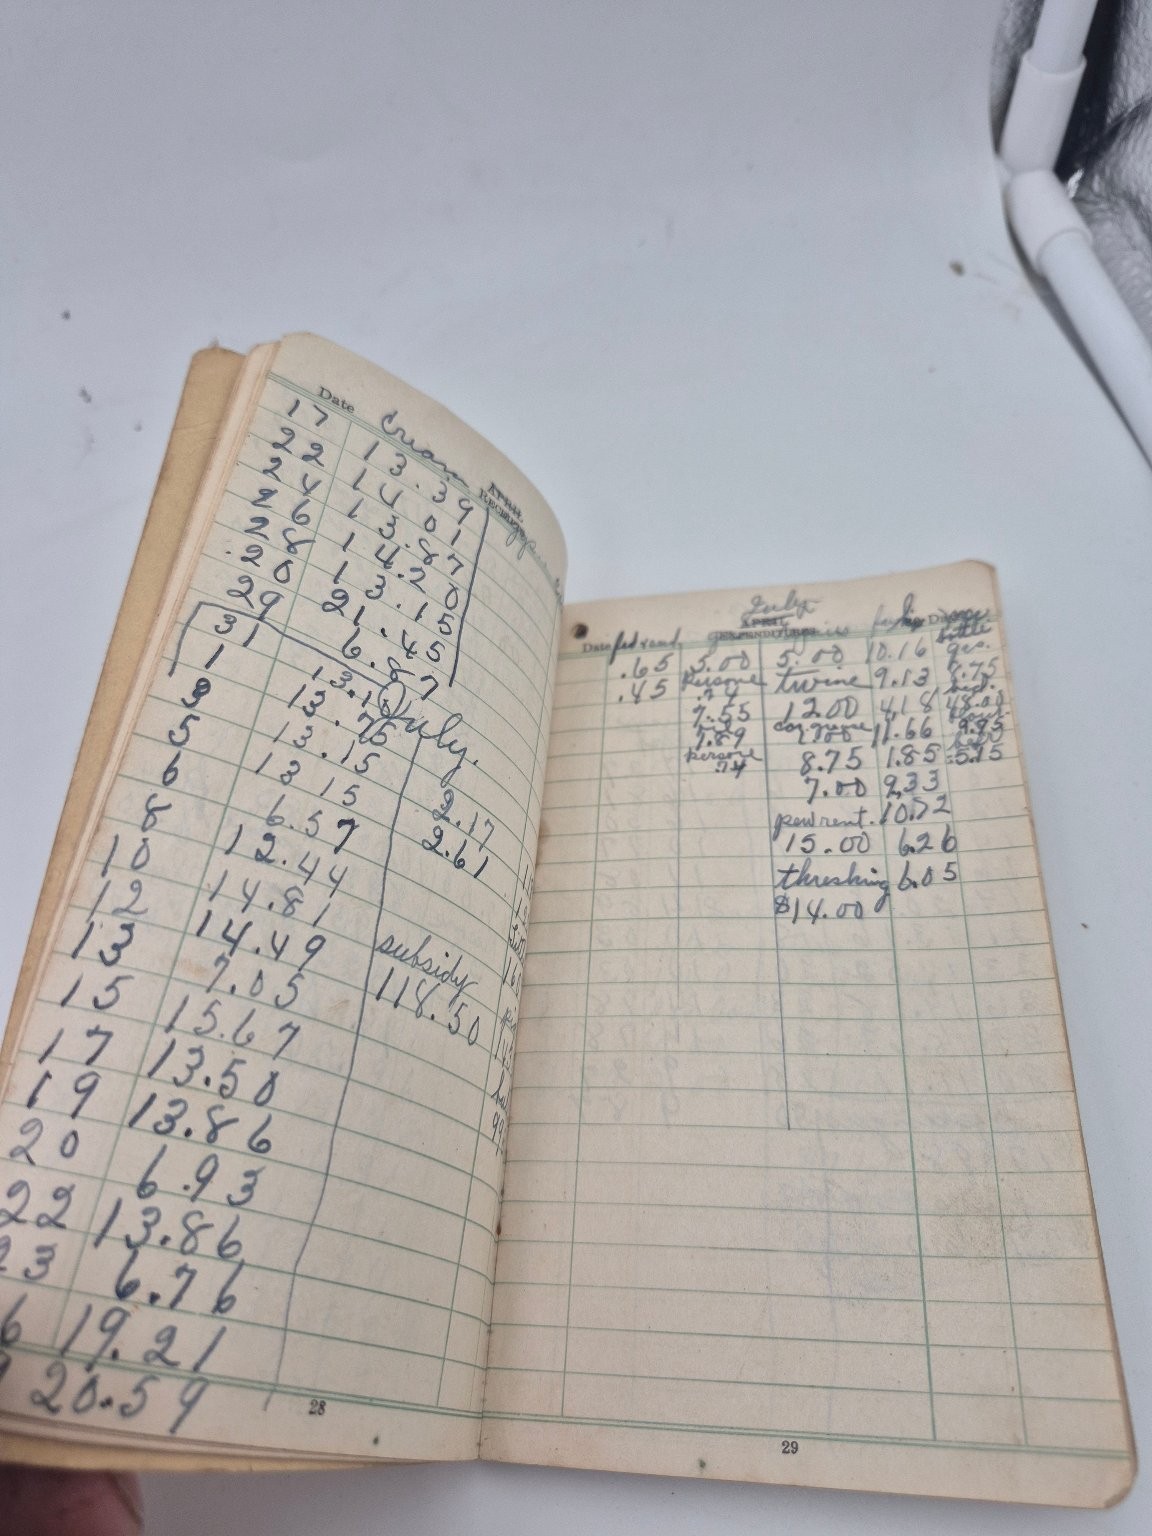 Date Cream APRIL RECEIPTS
17 13.39
22 14 01
24 13.87
26 14.20
28 13.15
20 21.45
29 6.87
31 13.1
1 13.75 July.
3 13.15
5 13 15
6 6.57 2.17
8 12.44 2.61
10 14.81
12 14.49
13 7.05 subsidy
15 15.67 118.50
17 13.50
19 13.86
20 6.93
22 13.86
23 6.76
6 19.21
9 20.59
28
July
APRIL
EXPENDITURES
Date
.65 5.00 5.00 10.16 gas.
.45 persone twine 9.13 6.75
.74
7.55 12.00 4.18 48.00
7.89 11.66 9.85
persone 8.75 1.85 5.15
.74
7.00 9.33
pew rent. 10.72
15.00 6.26
threshing 6.05
$14.00
29